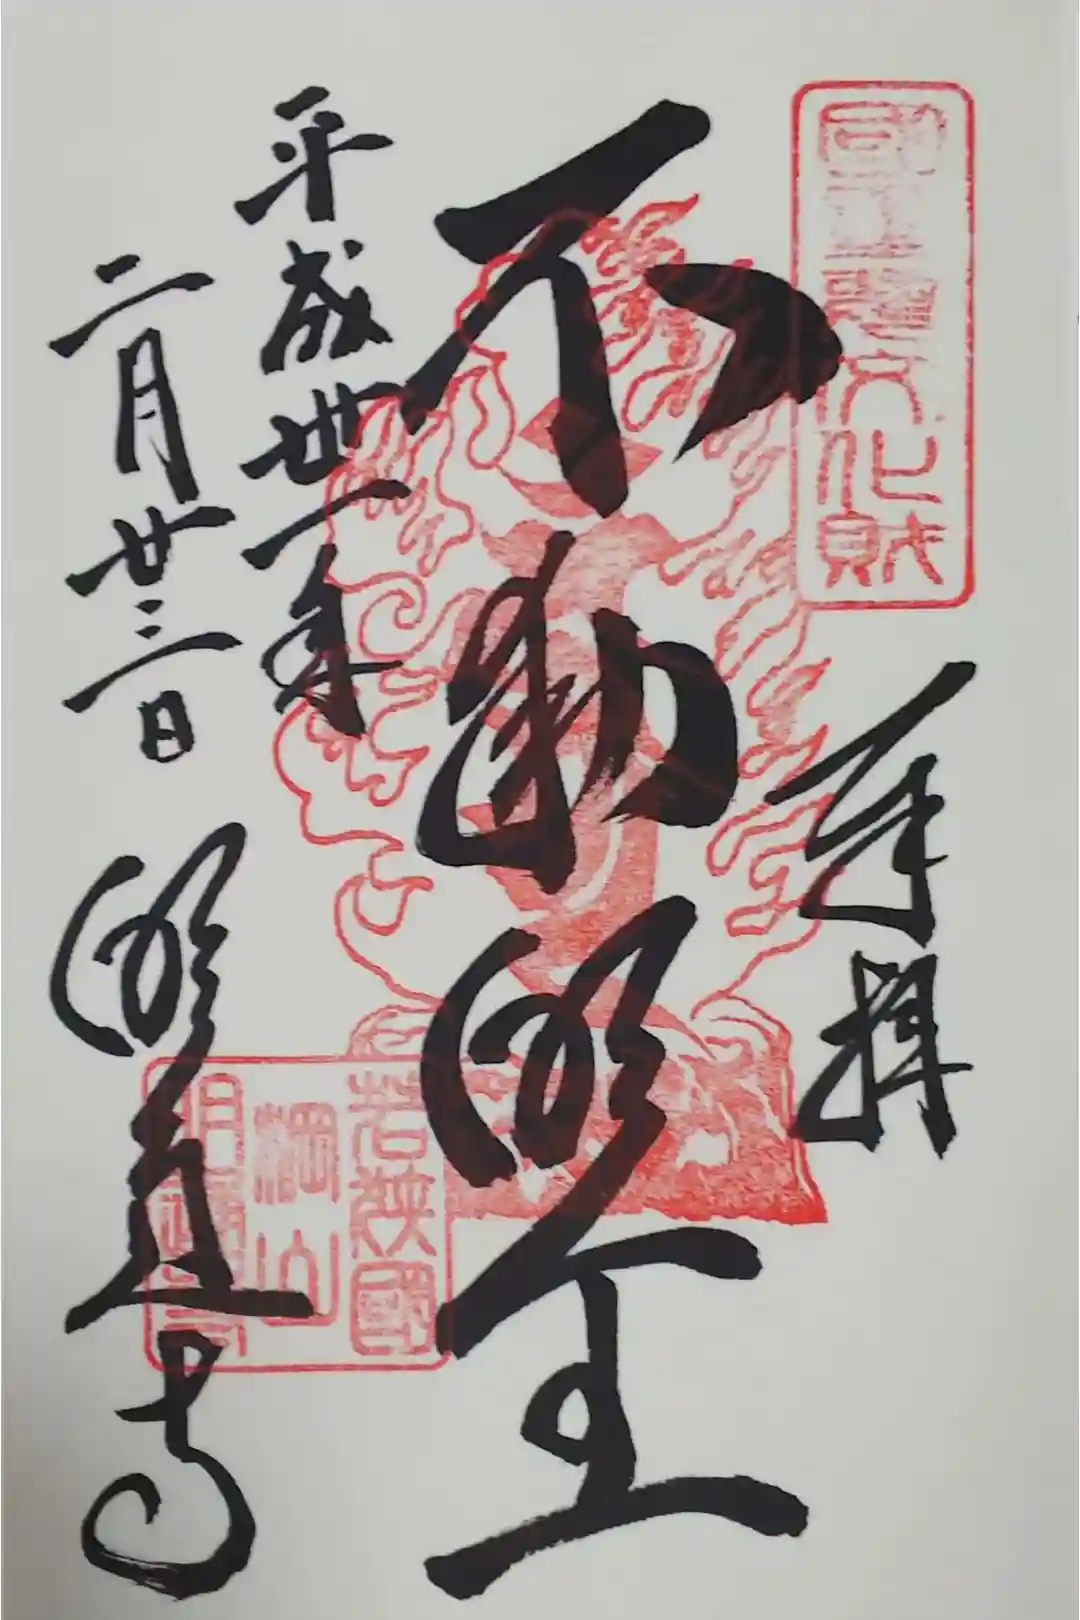 奉拝
不動明王
平成卅一年
二月廿三日
明通寺
國重要文化財
若狭國
棡山
明通寺